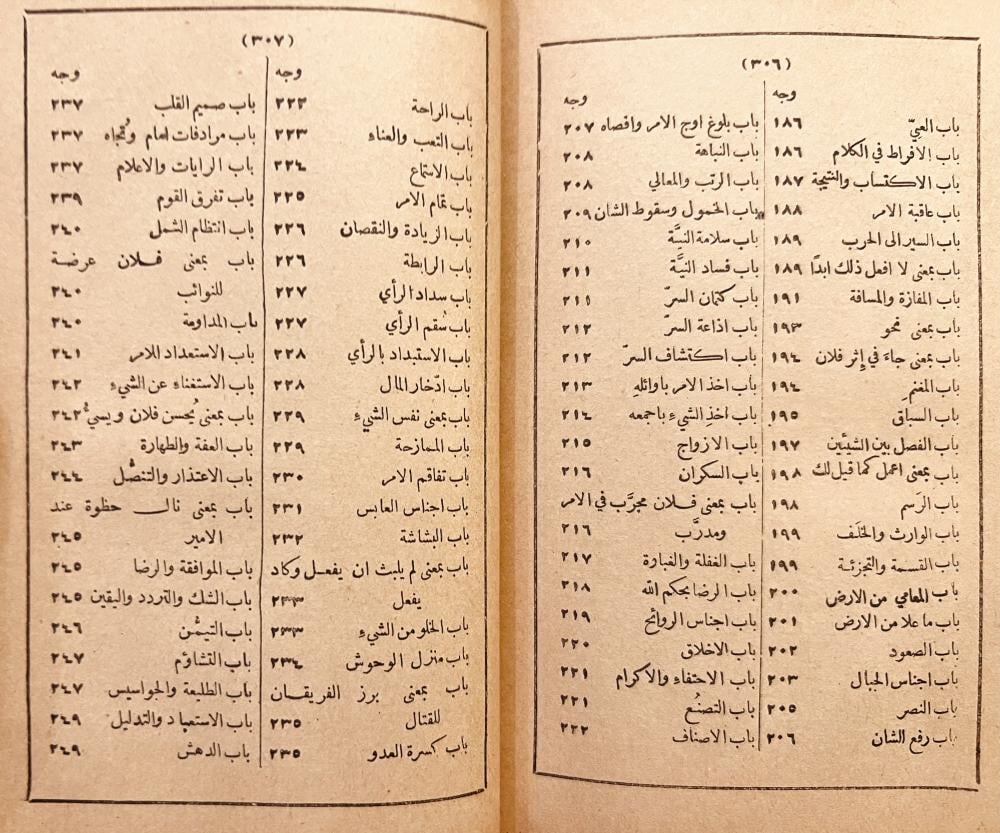 (٣٠٦)
وجه
باب العيّ ١٨٦
باب الافراط في الكلام ١٨٦
باب الاكتساب والنتيجة ١٨٧
باب عاقبة الامر ١٨٨
باب السير الى الحرب ١٨٩
باب بمعنى لا افعل ذلك ابدًا ١٨٩
باب المفازة والمسافة ١٩١
باب بمعنى نحو ١٩٣
باب بمعنى جاء في إثر فلان ١٩٤
باب المغنم ١٩٤
باب السباق ١٩٥
باب الفصل بين الشيئين ١٩٧
باب بمعنى اعمل كما قيل لك ١٩٨
باب الرَسم ١٩٨
باب الوارث والخَلَف ١٩٩
باب القسمة والتجزئة ١٩٩
باب المعامي من الارض ٢٠٠
باب ما علا من الارض ٢٠١
باب الصعود ٢٠٢
باب اجناس الجبال ٢٠٣
باب النصر ٢٠٥
باب رفع الشان ٢٠٦
وجه
باب بلوغ اوج الامر واقصاه ٢٠٧
باب النباهة ٢٠٨
باب الرتب والمعالي ٢٠٨
باب الخمول وسقوط الشان ٢٠٩
باب سلامة النيَّة ٢١٠
باب فساد النيَّة ٢١١
باب كتمان السرّ ٢١١
باب اذاعة السرّ ٢١٢
باب اكتشاف السرّ ٢١٢
باب اخذ الامر باوائلهِ ٢١٣
باب اخذِ الشيءِ باجمعه ٢١٤
باب الازواج ٢١٥
باب السكران ٢١٦
باب بمعنى فلان مجرَّب في الامر
ومدرَّب ٢١٦
باب الغفلة والغباوة ٢١٧
باب الرضا بحكم الله ٢١٨
باب اجناس الروائح ٢١٩
باب الاخلاق ٢٢٠
باب الاحتفاء والاكرام ٢٢١
باب التصنُع ٢٢١
باب الاصناف ٢٢٢
(٣٠٧)
وجه
باب الراحة ٢٢٢
باب التعب والعناء ٢٢٣
باب الاستماع ٢٢٤
باب تمام الامر ٢٢٥
باب الزيادة والنقصان ٢٢٦
باب الرابطة ٢٢٦
باب سداد الرأي ٢٢٧
باب سُقم الرأي ٢٢٧
باب الاستبداد بالرأي ٢٢٨
باب ادّخار المال ٢٢٨
باب بمعنى نفس الشيءِ ٢٢٩
باب الممازحة ٢٢٩
باب تفاقم الامر ٢٣٠
باب اجناس العابس ٢٣١
باب البشاشة ٢٣٢
باب بمعنى لم يلبث ان يفعل وكاد
يفعل ٢٣٣
باب الخلو من الشيءِ ٢٣٣
باب منزل الوحوش ٢٣٤
باب بمعنى برز الفريقان
للقتال ٢٣٥
باب كسرة العدو ٢٣٥
وجه
باب صميم القلب ٢٣٧
باب مرادفات امام وتُجاه ٢٣٧
باب الرايات والاعلام ٢٣٧
باب تفرق القوم ٢٣٩
باب انتظام الشمل ٢٤٠
باب بمعنى فلان عرضة
للنوائب ٢٤٠
باب المداومة ٢٤٠
باب الاستعداد للامر ٢٤١
باب الاستغناءِ عن الشيءِ ٢٤٢
باب بمعنى يُحسن فلان ويسيُّ ٢٤٢
باب العفة والطهارة ٢٤٣
باب الاعتذار والتنصُّل ٢٤٤
باب بمعنى نال حظوة عند
الامير ٢٤٥
باب الموافقة والرضا ٢٤٥
باب الشك والتردد واليقين ٢٤٥
باب التيمُّن ٢٤٦
باب التشاؤم ٢٤٧
باب الطليعة والجواسيس ٢٤٧
باب الاستعباد والتدليل ٢٤٩
باب الدهش ٢٤٩